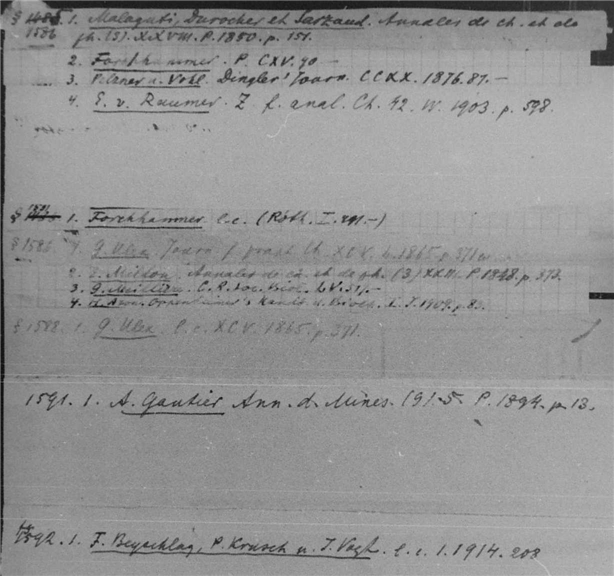 § 1586 1. Malaguti, Durocher et Sarzaud. Annales de ch. et de
ph. (3). XXVIII. P. 1850. p. 157.
2. Forchhammer. P. CXV. 90.—
3. u. Vohl. Dingler's Journ. CCXX. 1876. 87.—
4. E. v. Raumer. Z. f. anal. Ch. 42. W. 1903. p. 598.
§ 1. Forchhammer l.c. (Roth. I. 491.—)
§ 1586 G. Ulex Journ f prakt Ch. XCV. L. 1865 p. 371
2. E. Millon. Annales de ch. et de ph. (3) XXIII. P. 1848. p. 373.
3. G. C. R. soc. Biol. LV. 31/.—
4. Oppenheimer's Handb. d. Bioch. I. J. 1909. p. 82.
§ 1588. 1. G. Ulex. l.c. XCV. 1865. p. 371.
1591. 1. A. Gautier Ann. d. Mines. (9). 5. P. 1894. p. 13.
1592. 1. F. Beyschlag, P. Krusch u. J. Vogt. l.c. 1. 1914. 208